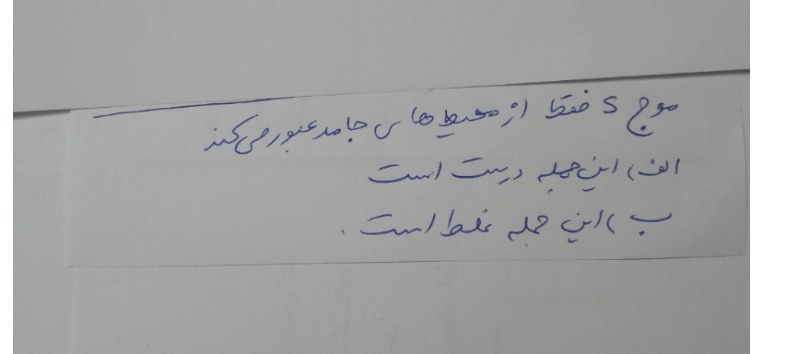 موج S فقط از محیط های جامد عبور می کند
الف) این جمله درست است
ب) این جمله غلط است.